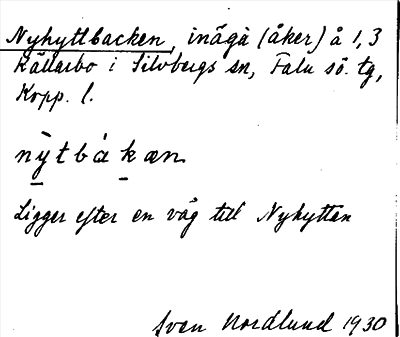 Nyhyttbacken, inägà (åker) å 1,3
Källarbo i Silvbergs sn, Falu sö. tg,
Kopp. l.
nỳtbákæn
Ligger efter en väg till Nyhyttan
Sven Nordlund 1930